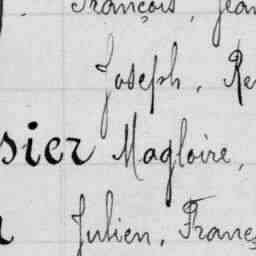 François, Jean
Joseph, Re
sier Magloire,
Julien, Franç